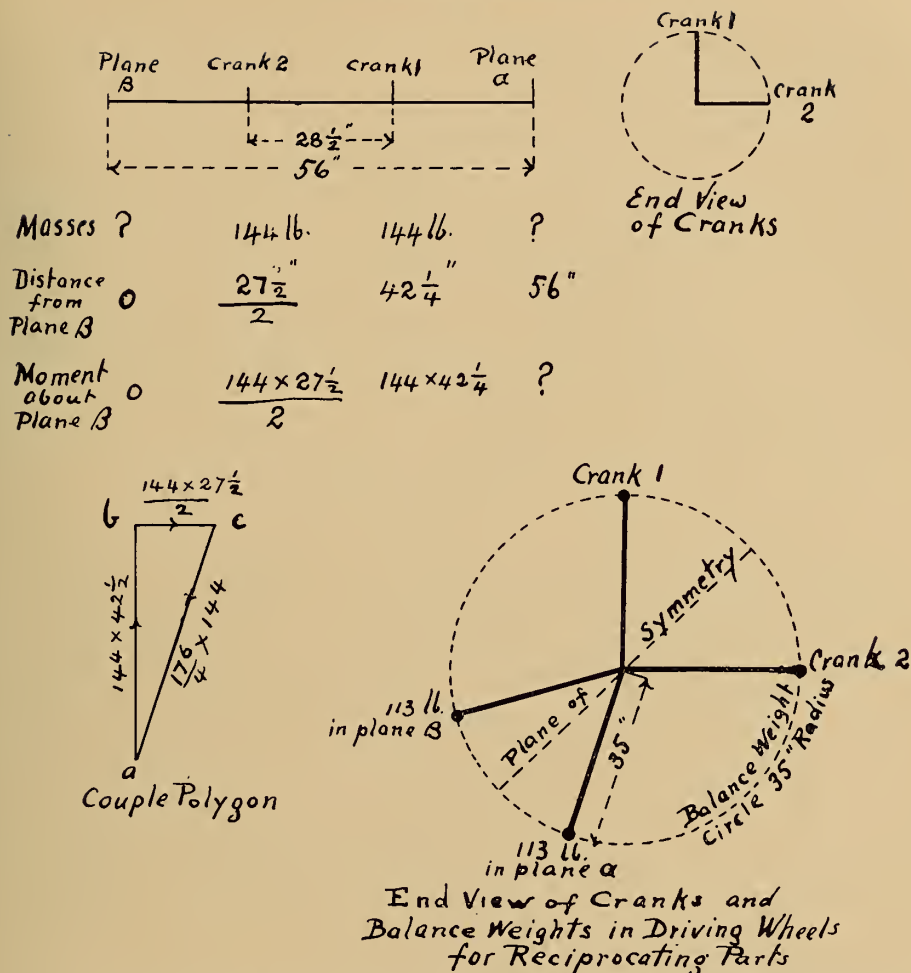 Plane β
Crank 2
Crank 1
Plane α
28 1/2"
56"
Crank 1
Crank 2
End View
of Cranks
Masses ? 144 lb. 144 lb. ?
Distance from Plane β 0 27 1/2" / 2 42 1/4" 56"
Moment about Plane β 0 144 × 27 1/2 / 2 144 × 42 1/4 ?
144 × 27 1/2 / 2
b
c
144 × 42 1/2
176/4 × 144
a
Couple Polygon
Crank 1
Symmetry
Crank 2
113 lb.
in plane β
Plane of
35"
Balance Weight
Circle 35" Radius
113 lb.
in plane α
End View of Cranks and
Balance Weights in Driving Wheels
for Reciprocating Parts